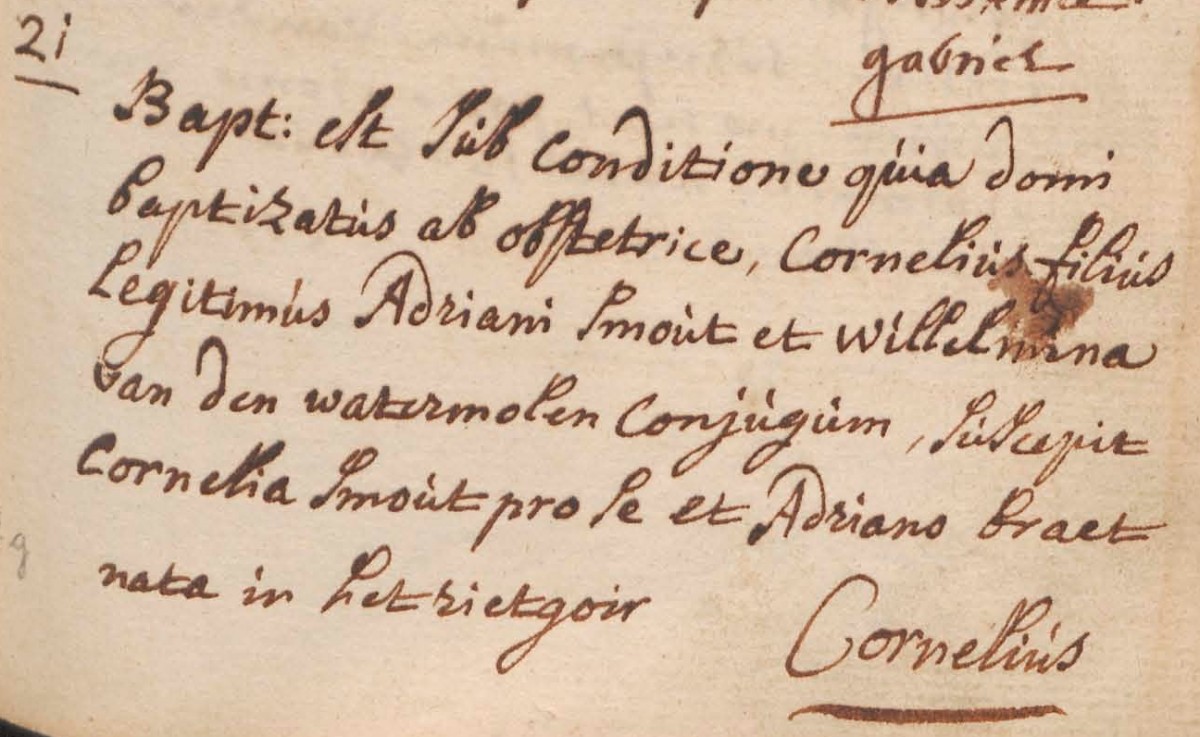 gabriel
21
Bapt: est sub conditione quia domi
baptizatus ab obstetrice, Cornelius filius
legitimus Adriani Smout et Willelmina
van den watermolen conjugum, suscepit
Cornelia Smout pro se et Adriano braet
nata in het rietgoir
Cornelius